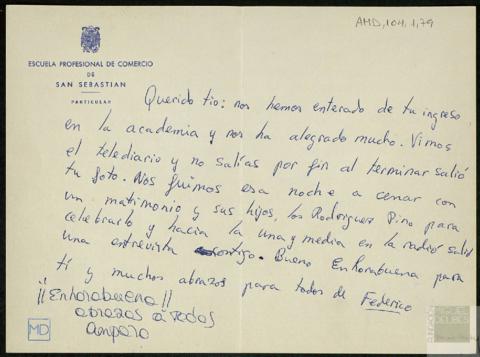 AMD,104,1,79
ESCUELA PROFESIONAL DE COMERCIO
DE
SAN SEBASTIAN
PARTICULAR
Querido tío: nos hemos enterado de tu ingreso
en la academia y nos ha alegrado mucho. Vimos
el telediario y no salías por fin al terminar salió
tu foto. Nos fuimos esa noche a cenar con
un matrimonio y sus hijos, los Rodriguez Pino para
celebrarlo y hacia la una y media en la radio salió
una entrevista contigo. Bueno Enhorabuena para
tí y muchos abrazos para todos de Federico
¡¡Enhorabuena!!
abrazos a todos
Amparo
MD
MIGUEL
DELIBES